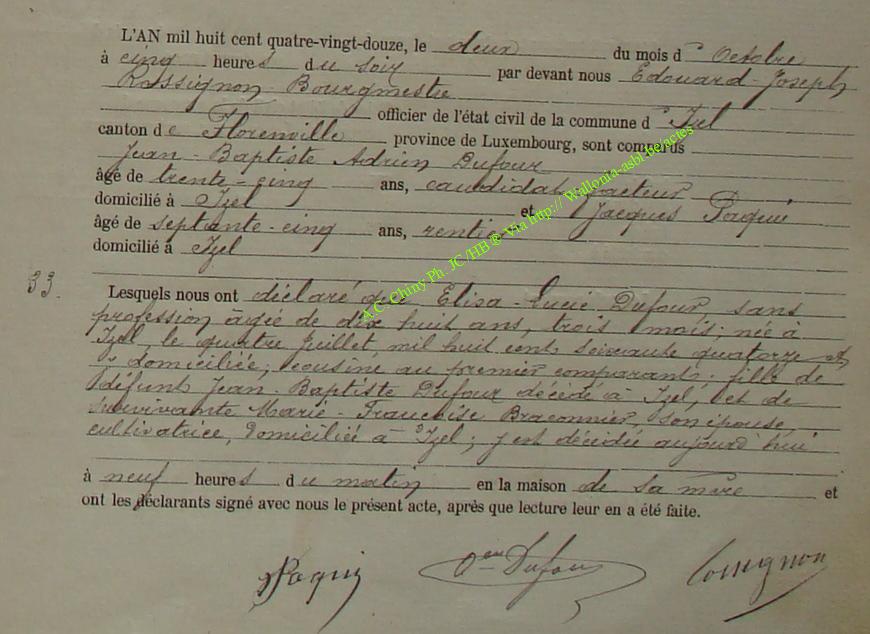 L'AN mil huit cent quatre-vingt-douze, le deux du mois d'Octobre
à cinq heures du soir par devant nous Edouard-Joseph
Rossignon Bourgmestre
officier de l'état civil de la commune d'Izel
canton de Florenville province de Luxembourg, sont comparus
Jean-Baptiste Adrien Dufour
âgé de trente-cinq ans, candidat facteur
domicilié à Izel et Jacques Paquis
âgé de septante-cinq ans, rentier
domicilié à Izel
33.
Lesquels nous ont déclaré que Elisa-Lucie Dufour, sans
profession âgée de dix huit ans, trois mois; née à
Izel, le quatre Juillet, mil huit cent soixante quatorze et
y domiciliée; cousine au premier comparant; fille de
défunt Jean-Baptiste Dufour décédé à Izel, et de
survivante Marie-Françoise Braconnier, son épouse,
cultivatrice, domiciliée à Izel; y est décédée aujourd'hui
à neuf heures du matin en la maison de sa mère et
ont les déclarants signé avec nous le présent acte, après que lecture leur en a été faite.
Dufour Rossignon
A.C. Chiny Ph. JC/HB® Via http://Wallonia-asbl.be/actes